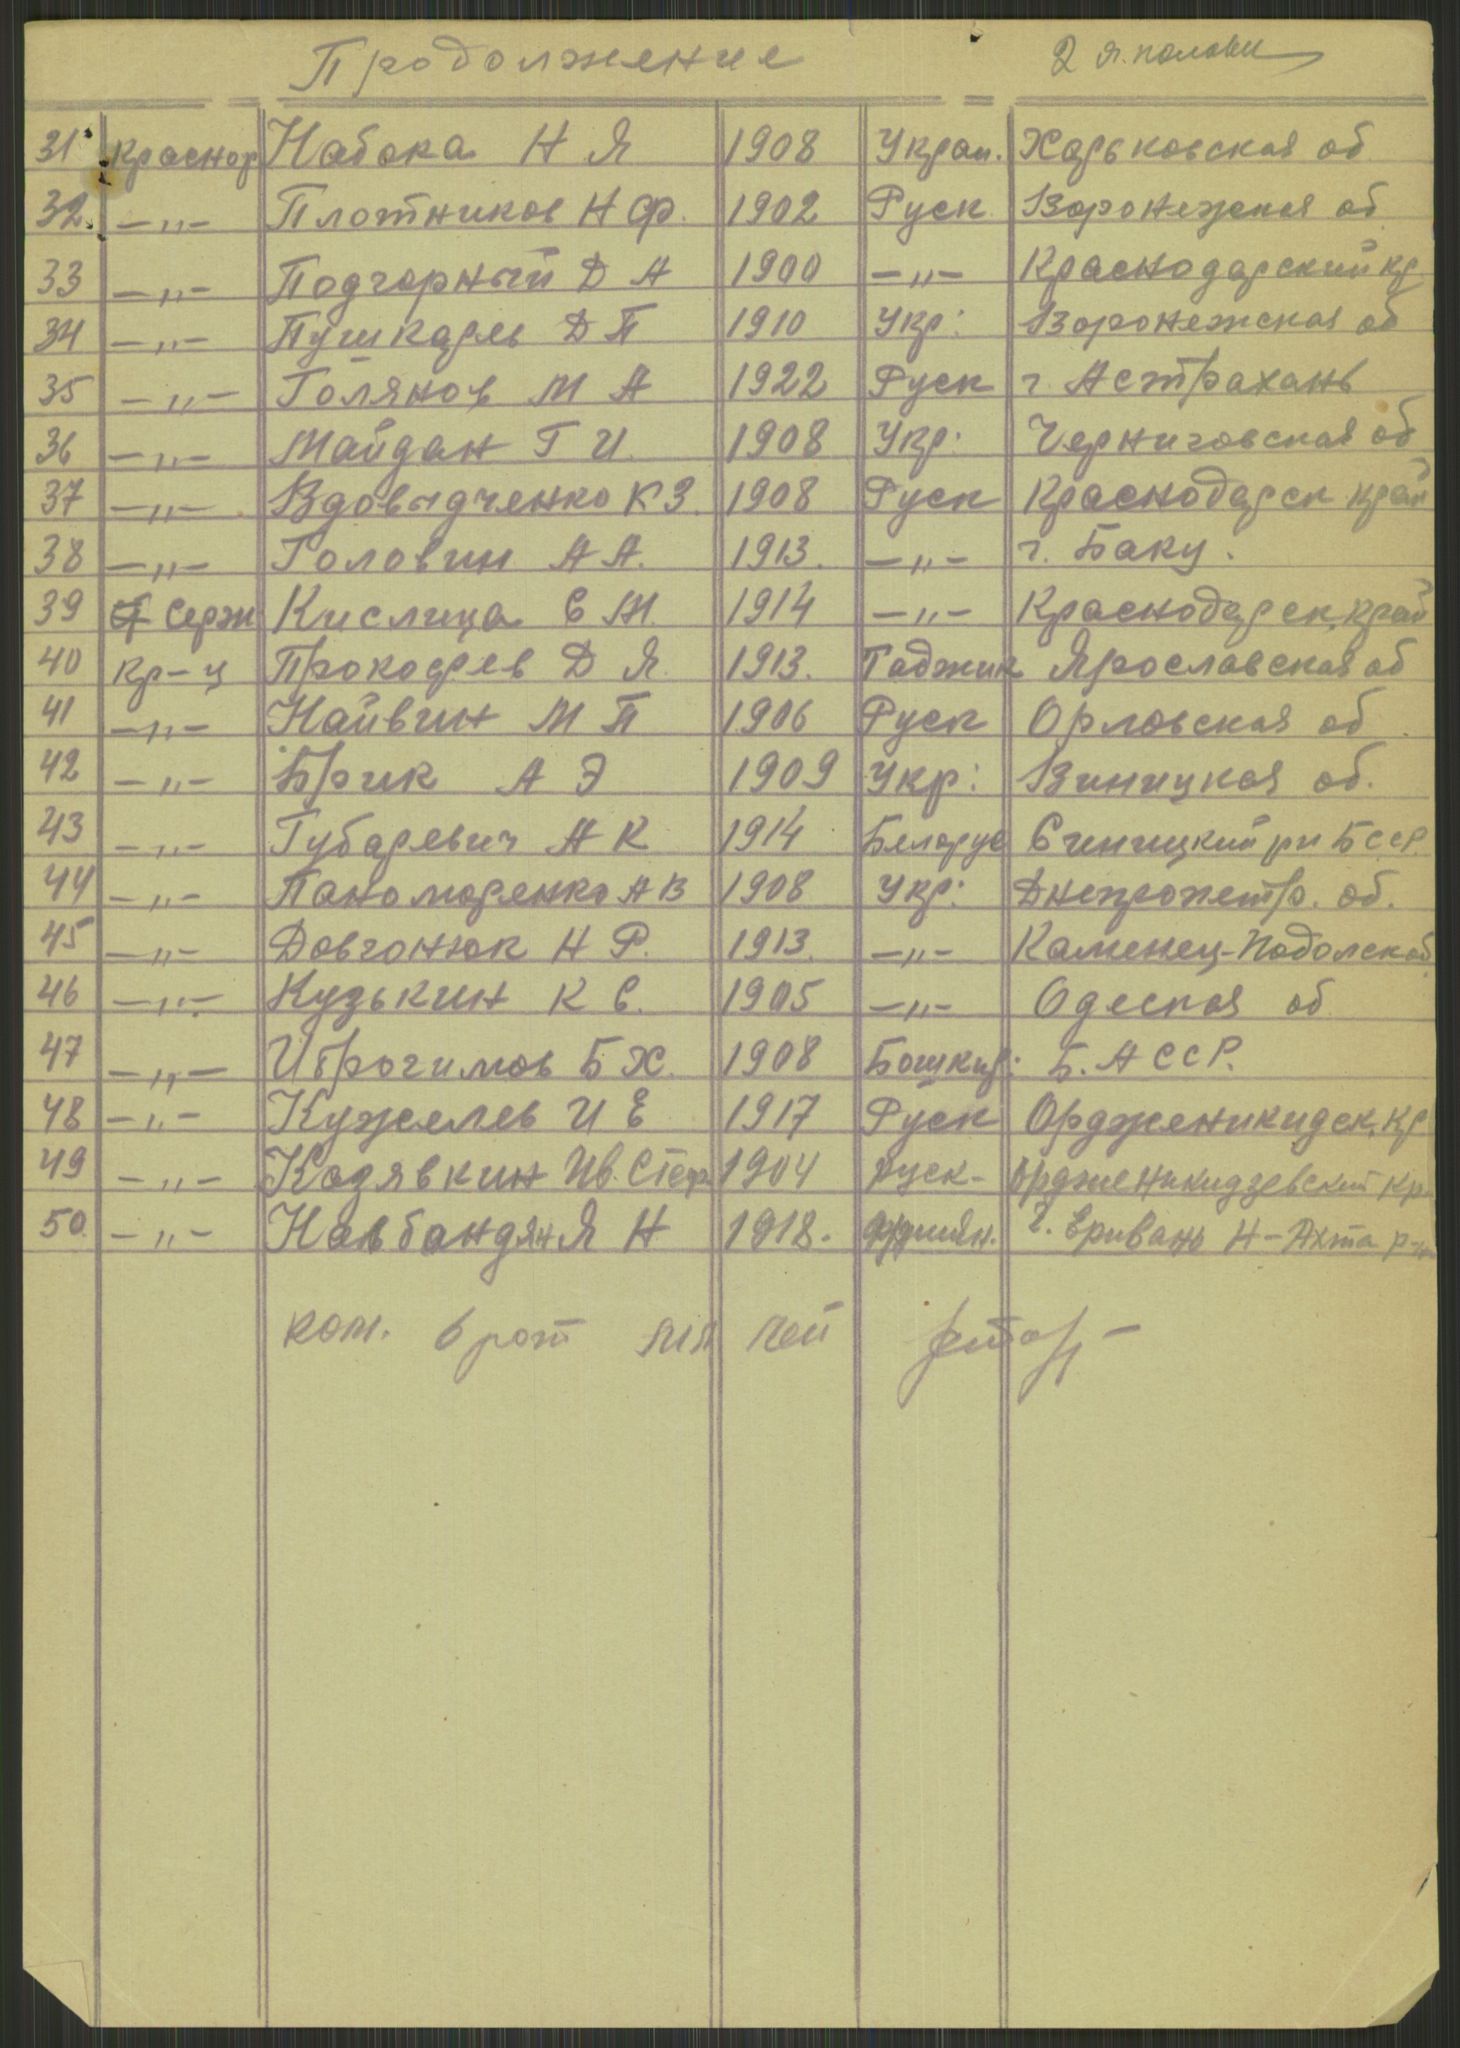 Продолжение 2 я. половин
31 Краснор Набока Н Я 1908 Украи. Харьковская об
32 —"— Плотников Н Ф. 1902 Руск Воронежская об
33 —"— Подгорный Д А 1900 —"— Краснодарский кр
34 —"— Пушкарев Д П 1910 Укр: Воронежская об
35 —"— Голянов М А 1922 Руск г. Астрахань
36 —"— Майдан Г И. 1908 Укр: Черниговская об
37 —"— Вдовыдченко К З. 1908 Руск Краснодарск край
38 —"— Головин А А. 1913. —"— г. Баку.
39 Серж Кислица С М. 1914 —"— Краснодарск. край
40 Кр-ц Прокофьев Д Я. 1913. Таджик Ярославская об
41 —"— Найвин М П 1906 Руск Орловская об.
42 —"— Брик А Э 1909 Укр: Виницкая об.
43 —"— Губаревич А К 1914 Белорус Синицкий рн БССР.
44 —"— Паномаренко А В 1908 Укр: Днепропетр. об.
45 —"— Довгонюк Н Р. 1913. —"— Каменец-Подолск об
46 —"— Кузькин К С. 1905 —"— Одеская об
47 —"— Иброгимов Б Х. 1908 Бошкир: Б. АССР.
48 —"— Кужелев И Е 1917 Руск Ордженикидск. кр
49 —"— Кодявкин Ив. Стеф 1904 Руск- Ордженикидзевский кр.
50. —"— Налбандян Я Н 1918. Армян. г. Ериван Н-Ахта р-н
ком. 6 рот